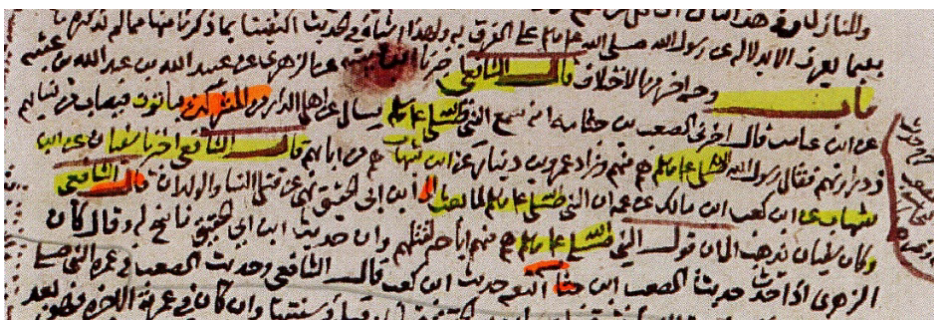 بعينها يعرف الا بدلالة عن رسول الله صلى الله عليه وسلم على الفرق به ولهذا اشباه في الحديث اكتفينا بما ذكرنا منها مما لم نذكره
باب وجه اخر من الاختلاف قال الشافعي اخبرنا ابن عيينه عن الزهري عن عبيد الله بن عبد الله بن عتبه
عن ابن عباس قال اخبرني الصعب بن جثامه انه سمع النبي صلى الله عليه وسلم يسال عن اهل الدار من المشركين يبيتون فيصاب من نسايهم
وذراريهم فقال رسول الله صلى الله عليه وسلم هم منهم وزاد عمرو بن دينار عن ابن شهاب هم من ابايهم قال الشافعي اخبرنا سفيان عن ابن
شهاب عن ابن كعب ابن مالك عن عمه ان النبي صلى الله عليه وسلم لما بعث الى ابن ابي الحقيق نهى عن قتل النسا والولدان قال الشافعي
وكان سفيان يذهب الى ان قول النبي صلى الله عليه وسلم هم منهم اباحه لقتلهم وان حديث ابن ابي الحقيق ناسخ له وقال كان
الزهري اذا حدث حديث الصعب ابن جثامه اتبعه حديث ابن كعب قال الشافعي وحديث الصعب في عمرة النبي صلى